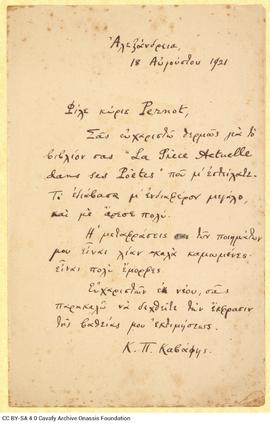 Ἀλεξάνδρεια,
18 Αὐγούστου 1921
Φίλε κύριε Pernot,
Σᾶς εὐχαριστῶ θερμῶς γιὰ τὸ
βιβλίον σας "La Grèce Actuelle
dans ses Poètes" ποὺ μ' ἐστείλατε.
Τὸ ἐδιάβασα μ' ἐνδιαφέρον μεγάλο,
καὶ μὲ ἄρεσε πολύ.
Ἡ μεταφράσεις τῶν ποιημάτων
μου εἶναι λίαν καλὰ καμωμένες·
εἶναι πολὺ ἔμορφες.
Εὐχαριστῶν ἐκ νέου, σᾶς
παρακαλῶ νὰ δεχθεῖτε τὴν ἔκφρασιν
τῆς βαθείας μου ἐκτιμήσεως.
Κ. Π. Καβάφης
CC BY-SA 4 0 Cavafy Archive Onassis Foundation